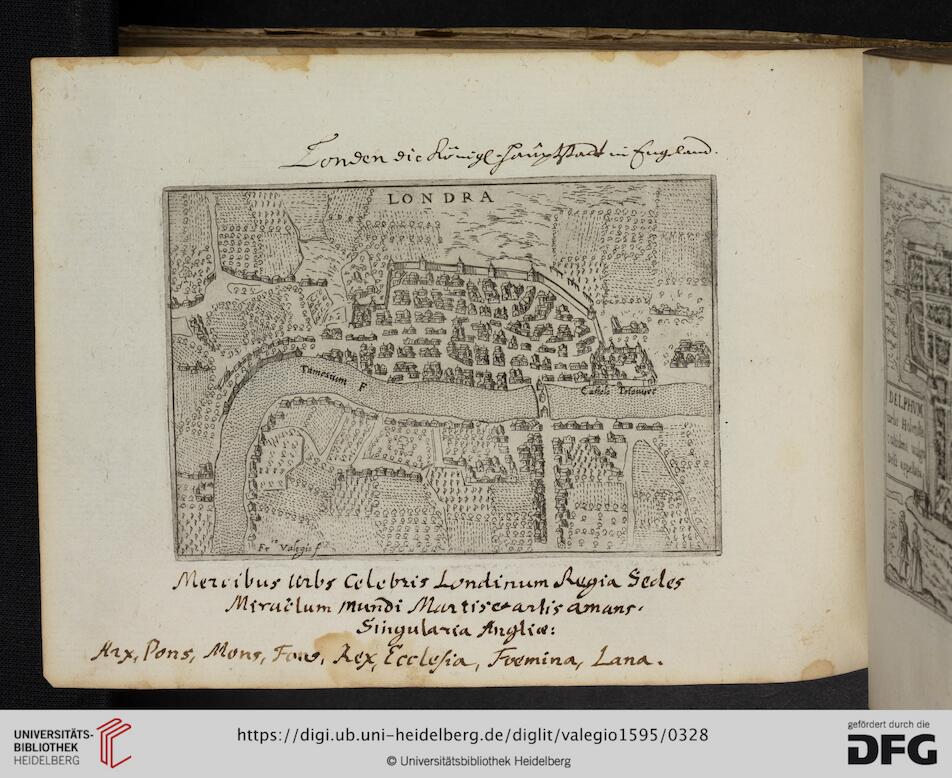 Londen die Königl. Haüptstadt in England.
LONDRA
Tamesium F
Castelo
Fr.co Valegio f.
Mercibus Urbs Celebris Londinum Regia Sedes
Miraclum mundi Martis et artis amans.
Singularia Angliæ:
Arx, Pons, Mons, Fons, Rex, Ecclesia, Foemina, Lana.
DELPHUM
UNIVERSITÄTS-
BIBLIOTHEK
HEIDELBERG
https://digi.ub.uni-heidelberg.de/diglit/valegio1595/0328
© Universitätsbibliothek Heidelberg
gefördert durch die
DFG